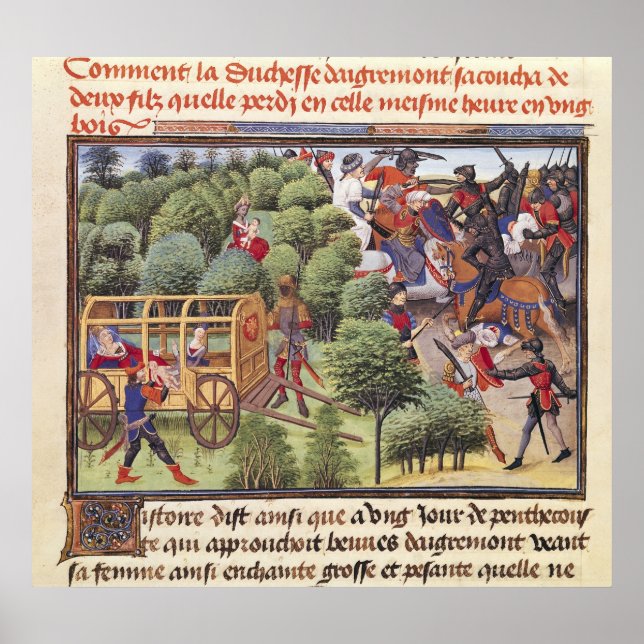 Comment la Duchesse daigremont sacoucha de
deux filz quelle perdj en celle meisme heure en vng
boiδ
istoire dist ainsi que a vng Jour de penthecous
te qui approuchoit beuues daigremont veant
sa femme ainsi enchainte grosse et pesante quelle ne